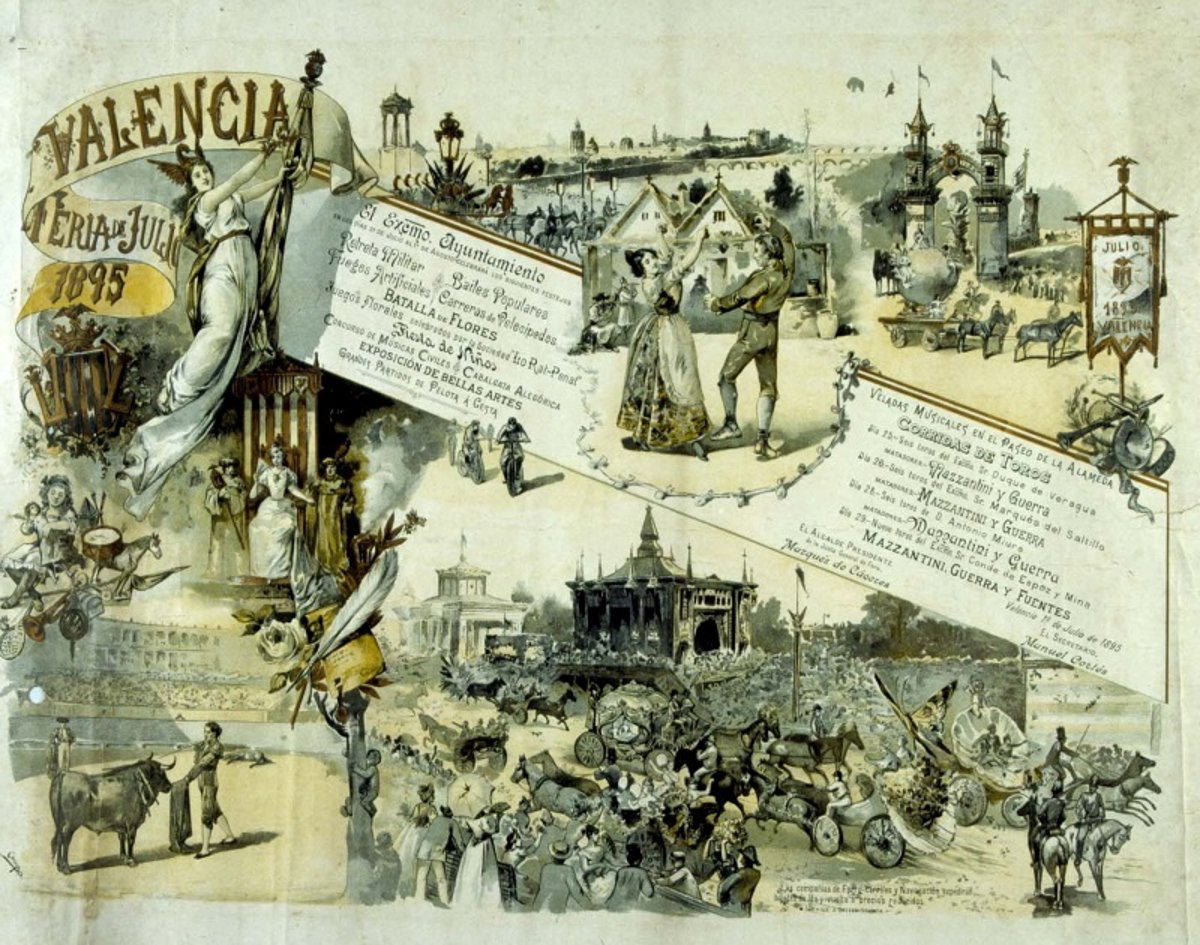 VALENCIA
FERIA DE JULIO
1895
El Excmo. Ayuntamiento
EN LOS DIAS 21 DE JULIO AL 1º DE AGOSTO CELEBRARÁ LOS SIGUIENTES FESTEJOS
Retreta Militar Bailes Populares
Fuegos Artificiales Carreras de Velocipedos
BATALLA DE FLORES
Juegos Florales celebrados por la Sociedad Lo Rat-Penat
Fiesta de Niños
Concurso de Músicas Civiles Cabalgata Alegórica
EXPOSICIÓN DE BELLAS ARTES
Grandes Partidos de Pelota á Cesta
JULIO.
1895
VALENCIA
Veladas Musicales en el Paseo de la Alameda
CORRIDAS DE TOROS
Dia 25.-Seis toros del Excmo. Sr. Duque de Veragua
MATADORES- Mazzantini y Guerra
Dia 26.-Seis toros del Excmo. Sr. Marqués del Saltillo
MATADORES- MAZZANTINI Y GUERRA
Dia 28.-Seis toros de D. Antonio Miura
MATADORES- Mazzantini y Guerra
Dia 29.-Nueve toros del Excmo. Sr. Conde de Espoz y Mina
MAZZANTINI, GUERRA Y FUENTES
Valencia 1º de Julio de 1895
EL ALCALDE PRESIDENTE
de la Junta General de Feria.
Marqués de Cáceres
EL SECRETARIO,
Manuel Cortés
Las compañias de Ferro-carriles y Navegación expedirán
billetes de ida y vuelta á precios reducidos.